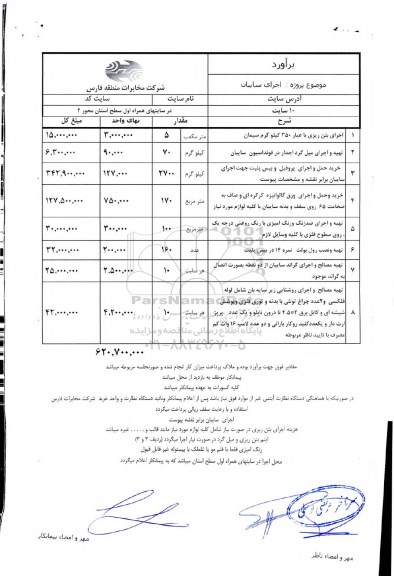 برآورد
شرکت مخابرات منطقه فارس
موضوع پروژه : اجرای سایبان
آدرس سایت نام سایت سایت کد
۱۰ سایت در سایتهای همراه اول سطح استان محور ۲
شرح مقدار بهای واحد مبلغ کل
۱ اجرای بتن ریزی با عیار ۳۵۰ کیلو گرم سیمان متر مکعب ۵ ۳,۰۰۰,۰۰۰ ۱۵,۰۰۰,۰۰۰
۲ تهیه و اجرای میل گرد آجدار در فونداسیون سایبان کیلو گرم ۷۰ ۹۰,۰۰۰ ۶,۳۰۰,۰۰۰
۳ خرید حمل و اجرای پروفیل و بیس پلیت جهت اجرای سایبان برابر نقشه و مشخصات پیوست کیلو گرم ۲۷۰۰ ۱۲۷,۰۰۰ ۳۴۲,۹۰۰,۰۰۰
۴ خرید وحمل و اجرای ورق گالوانیزه کرکره ای و صاف به ضخامت ۶۵ روی سقف و بدنه سایبان با کلیه لوازم مورد نیاز متر مربع ۱۷۰ ۷۵۰,۰۰۰ ۱۲۷,۵۰۰,۰۰۰
۵ تهیه و اجرای ضدزنگ ورنگ آمیزی با رنگ روغنی درجه یک روی سطوح فلزی با کلیه وسایل لازم مترمربع ۱۰۰ ۳۰۰,۰۰۰ ۳۰,۰۰۰,۰۰۰
۶ تهیه ونصب رول بولت نمره ۱۴ در بیس پلیت عدد ۱۶۰ ۲۰۰,۰۰۰ ۳۲,۰۰۰,۰۰۰
۷ تهیه مصالح و اجرای گراند سایبان از دو نقطه بصورت اتصال به گراند موجود هر سایت ۱۰ ۲,۵۰۰,۰۰۰ ۲۵,۰۰۰,۰۰۰
۸ تهیه مصالح و اجرای روشنایی زیر سایه بان شامل لوله فلکسی و۲عدد چراغ تونلی با بدنه و توری فلزی وپوشش
شیشه ای و کابل برق ۲.۵*۳ تا درون تابلو و یک عدد پریز
ارت دار و یکعددکلید روکار بارانی و دو عدد لامپ ۱۶وات کم
مصرف با تایید ناظر مربوطه هر سایت ۱۰ ۴,۲۰۰,۰۰۰ ۴۲,۰۰۰,۰۰۰
۶۲۰,۷۰۰,۰۰۰
مقادیر فوق جهت برآورد بوده و ملاک پرداخت میزان کار انجام شده و صورتجلسه مربوطه میباشد
پیمانکار موظف به بازدید از محل میباشد
کلیه کسورات به عهده پیمانکار میباشد
اجرای سایبان برابر نقشه پیوست
هزینه اجرای بتن ریزی در صورت نیاز شامل کلیه لوازم مورد نیاز مانند قالب و ..... غیره میباشد
آیتم بتن ریزی و میل گرد در صورت نیاز اجرا میگردد (ردیف ۲ و ۳)
رنگ آمیزی فقط با قلم مو یا غلطک یا پیستوله غیر قابل قبول
محل اجرا در سایتهای همراه اول سطح استان میباشد که به پیمانکار اعلام میگردد
مهر و امضاء پیمانکار
مهر و امضاء ناظر
ParsNamadData
۰۲۱-۸۸۳۴۹۶۷۰-۵